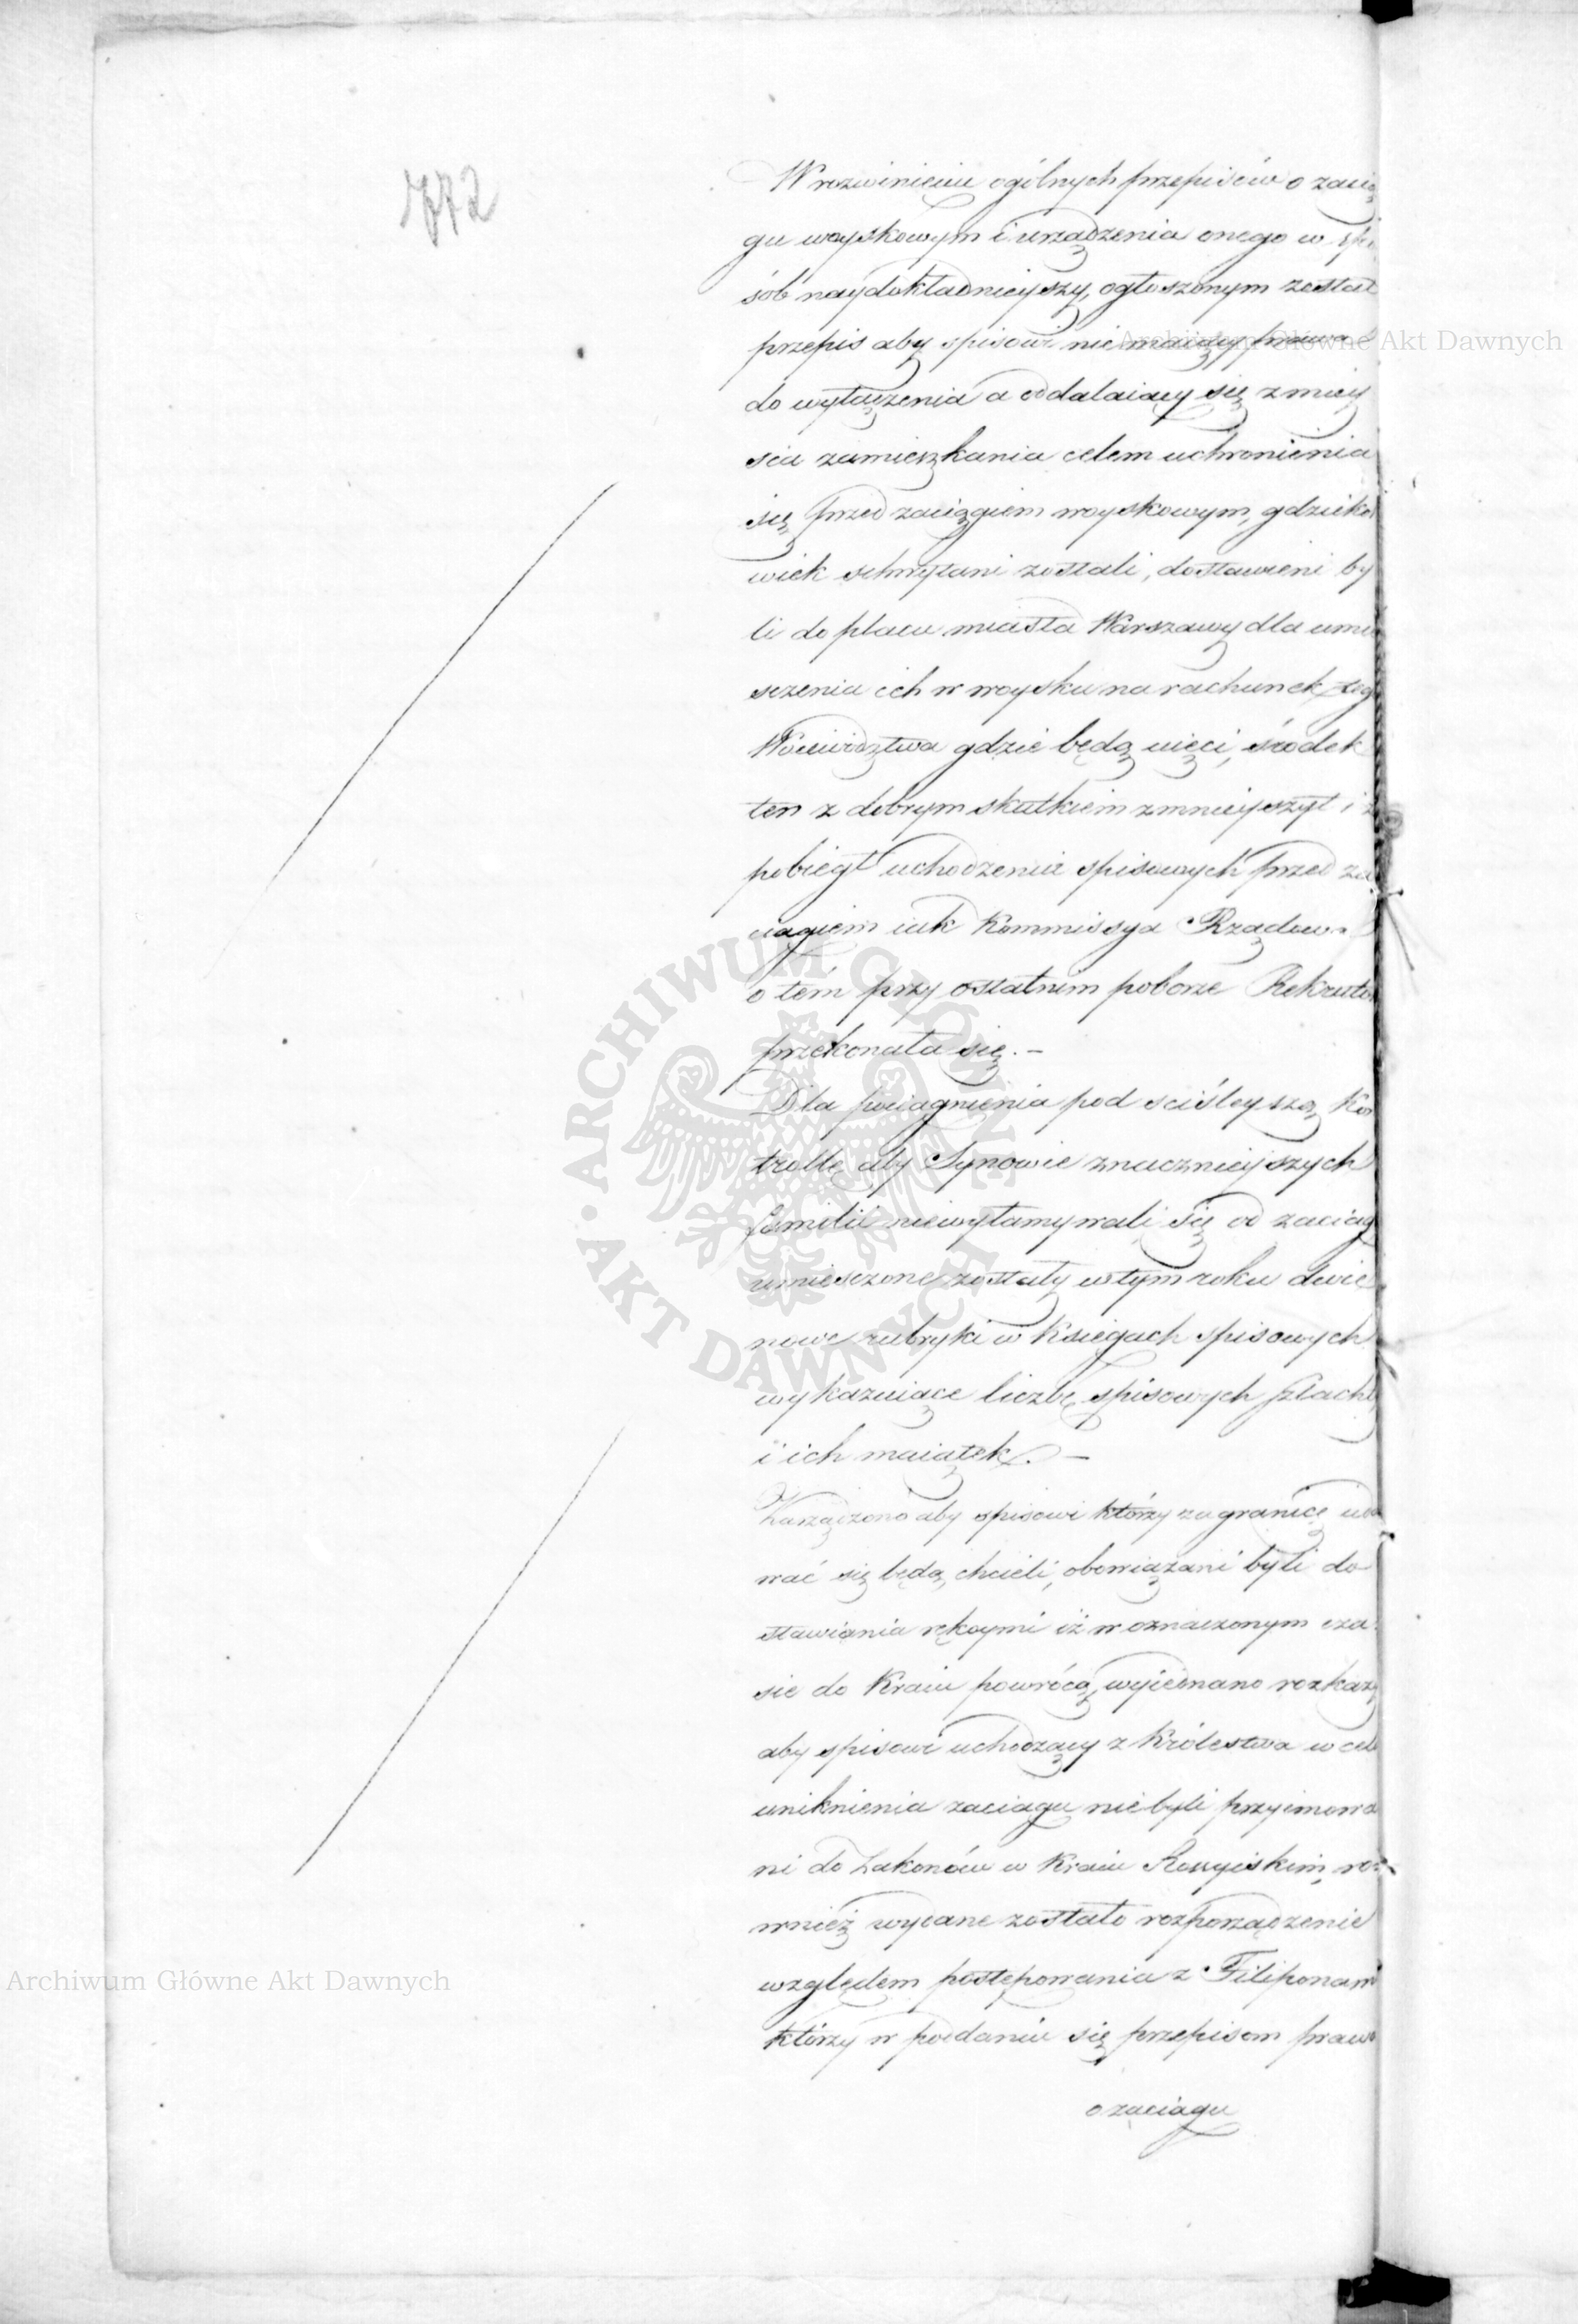 772
W rozwinięciu ogólnych przepisów o zacią
gu woyskowym i urządzenia onego w spo
sób naydokładnieyszy, ogłoszonym został
przepis aby spisowi nie maiący prawa
do wyłączenia a oddalaiący się z miey
sca zamieszkania celem uchronienia
się przed zaciągiem woyskowym, gdzieko
wiek schwytani zostali, dostawieni by
li do placu miasta Warszawy dla umie
sczenia ich w woysku na rachunek teg
Woiewództwa gdzie będą uięci, środek
ten z dobrym skutkiem zmnieyszył i z
pobiegł uchodzeniu spisowych przed za
ciągiem iak Kommissya Rządowa
o tém przy ostatnim poborze Rekruto
przekonała się. –
Dla pociągnienia pod ściśleyszą Kon
trollę aby Synowie znacznieyszych
familii niewyłamywali się od zaciąg
umiesczone zostały w tym roku dwie
nowe rubryki w Księgach spisowych
wykazuiące liczbę spisowych Szlachty
i ich maiątek. –
Zarządzono aby spisowi którzy za granicę uda
wać się będą chcieli, obowiązani byli do
stawiania rękoymi iż w oznaczonym cza
sie do Kraiu powrócą, wyiednano rozkazy
aby spisowi uchodzący z Królestwa w celu
uniknienia zaciągu nie byli przyimowa
ni do Zakonów w Kraiu Rossyiskim, ró
wnież wydane zostało rozporządzenie
względem postępowania z Filiponami
którzy w poddaniu się przepisom prawa
o zaciągu
Archiwum Główne Akt Dawnych
Archiwum Główne Akt Dawnych
ARCHIWUM GŁÓWNE
AKT DAWNYCH